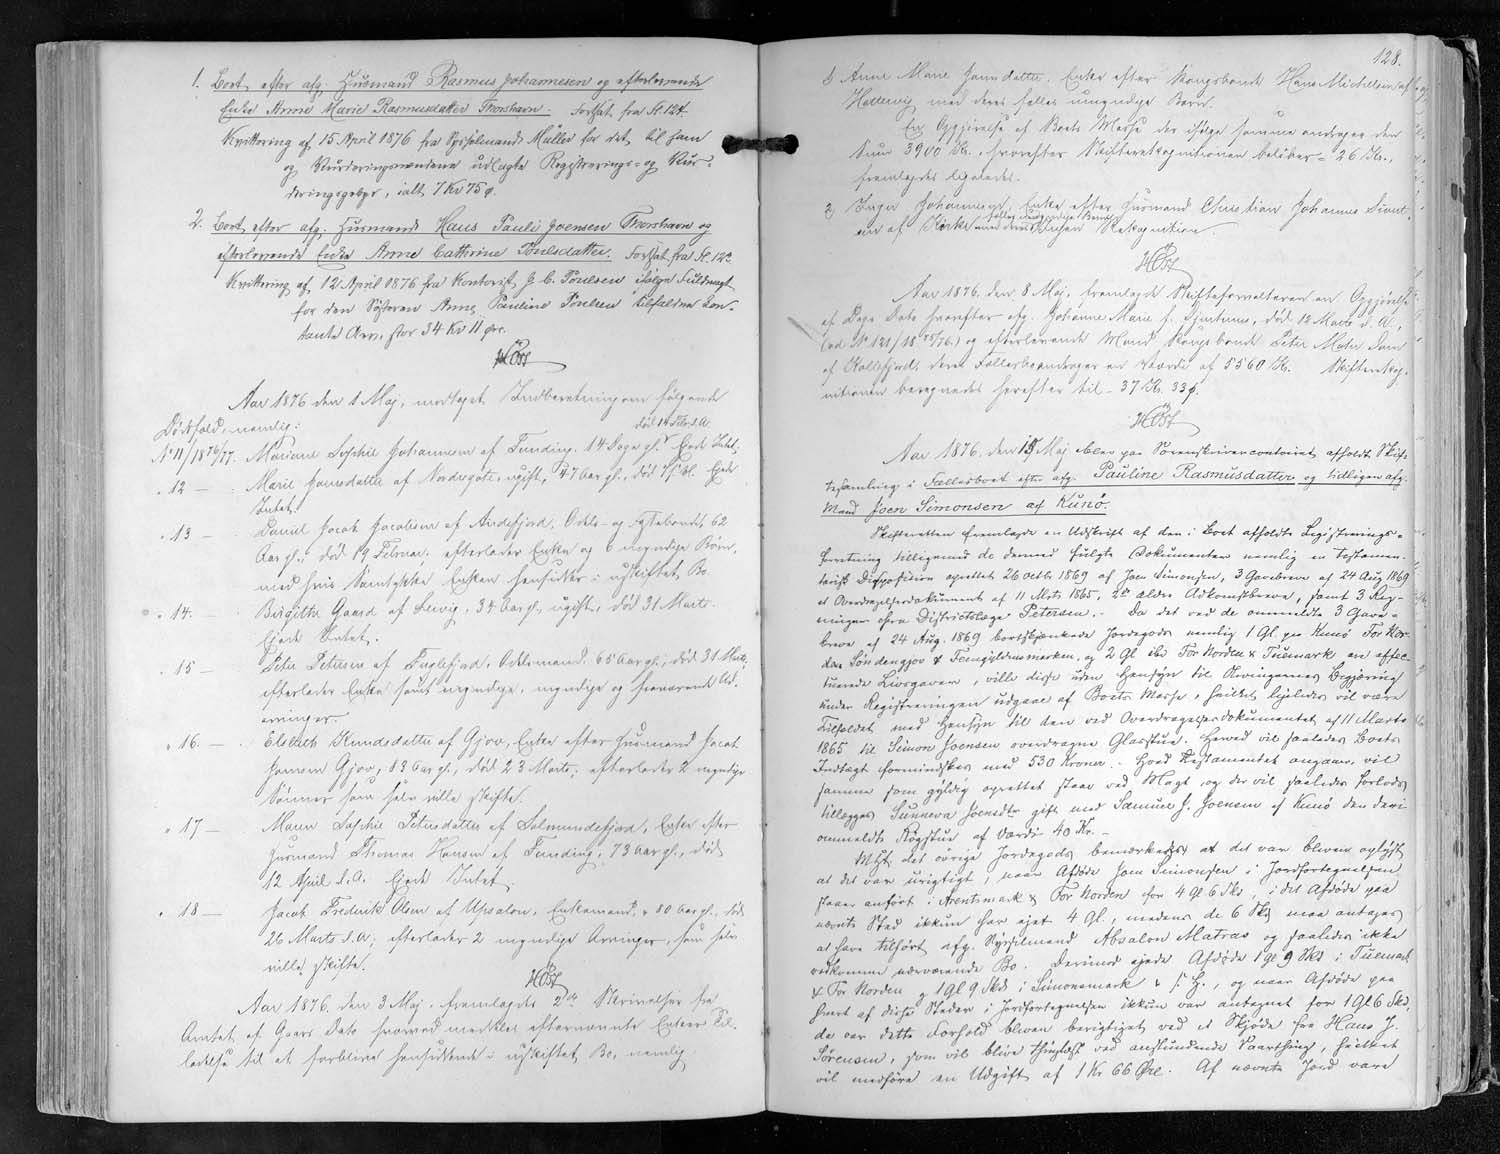 1. Boet efter afg. Husmand Rasmus Johannesen og efterlevende
Enke Anne Marie Rasmusdatter Thorshavn. Fortsat fra Fl. 124.
Kvittering af 15 April 1876 fra Sysselmand Müller for det til ham
og Vurderingsmændene udlagte Registrerings- og Vur-
deringsgebyr, ialt 7 Kr 75 Ø.
2. Boet efter afg. Husmand Hans Pauli Joensen Thorshavn og
efterlevende Enke Anne Cathrine Poulsdatter. Fortsat fra Fl.
Kvittering af 12 April 1876 fra Kontorist J. C. Poulsen ifølge Fuldmagt
for den Søsteren Anne Pauline Poulsen tilfaldne Kon-
tante Arv, stor 34 Kr 11 Øre.
HØst
Aar 1876 den 1 Maj, modtaget Indberetning om følgende
Dødsfald, nemlig:
død 14 Febr. d.A.
No 11/1876/77. Mariane Sophie Johannesen af Funding, 14 Dage gl. Ejede Intet.
" 12 — Marie Joensdatter af Nordregøte, ugift, 47 Aar gl., død Ejede
Intet.
" 13 — Daniel Jacob Jacobsen af Andefjord, Odels- og Fæstebonde, 62
Aar gl., død 19 Februar; efterlader Enke og 6 myndige Børn,
med hvis Samtykke Enken hensidder i uskiftet Bo.
" 14. — Birgithe Gaard af Lervig, 34 Aar gl., ugift, død 31 Marts.
Ejede Intet.
" 15 — Peter Petersen af Fuglefjord, Odelsmand, 65 Aar gl., død 31 Marts,
efterlader Enke samt myndige, umyndige og fraværende Ar-
vinger.
" 16. — Elsebeth Knudsdatter af Gjov, Enke efter Husmand Jacob
Hansen Gjov, 83 Aar gl., død 23 Marts; efterlader 2 myndige
Sønner som selv ville skifte.
" 17 — Maren Sophie Petersdatter af Solmundefjord, Enke efter
Husmand Thomas Hansen af Funding, 73 Aar gl., død
12 April d.A. Ejede Intet.
" 18 — Jacob Frederik Olsen af Upsalon, Enkemand, 80 Aar gl., død
26 Marts d.A; efterlader 2 myndige Arvinger, som selv
ville skifte.
HØst
Aar 1876, den 3 Maj, fremlagdes 2de Skrivelser fra
Amtet af Gaars Dato hvorved meddeles efternævnte Enker Til-
ladelse til at forblive hensiddende i uskiftet Bo, nemlig
128.
1) Anne Marie Joensdatter, Enke efter Kongsbonde Hans Michelsen af
Hellervig med deres fælles umyndige Børn.
En Opgjørelse af Boets Masse der ifølge samme andrager den
Sum 3900 Kr., hvorefter Skifterekognitionen beløber = 26 Kr.,
fremlagdes ligeledes.
2) Inger Enke efter Husmand Christian Johannes
af Kirke med deres fælles umyndige Børn uden Rekognition.
HØst
Aar 1876, den 8 Maj, fremlagde Skifteforvalteren en Opgjørelse
af Dags Dato hvorefter afg. Johanne Marie f. Djurhuus, død 12 Marts d.A.,
(ad No 121/1875/76.) og efterlevende Mand Kongsbonde Peter Mohr Dam
af Kollefjord, deres Fællesbo andrager en Værdi af 5560 Kr. Skifterekog-
nitionen beregnedes herefter til - 37 Kr. 33 Ø.
HØst
Aar 1876, den 15 Maj blev paa Sorenskrivercontoiret afholdt Skif-
tesamling i Fællesboet efter afg. Pauline Rasmusdatter og tidligere afg.
Mand Joen Simonsen af Kunø.
Skifteretten fremlagde en Udskrift af den i Boet afholdte Registrerings-
forretning tilligemed de dermed fulgte Dokumenter nemlig en testamen-
tarisk Disposition oprettet 26 octbr 1869 af Joen Simonsen, 3 Gavebreve af 24 Aug 1869
et Overdragelsesdokument af 11 Mrts 1865, 2de ældre Adkomstbreve, samt 3 Reg-
ninger fra Districtslæge Petersen. - Da det ved de ommeldte 3 Gave-
breve af 24 Aug. 1869 bortskjænkede Jordegods nemlig 1 Gl. paa Kunø For Nor-
den Søndengjov & Femgyldensmarken, og 2 Gl. ibd. For Norden & Tuemark ere effec-
tuerede Livsgaver, ville disse uden Hensyn til Arvingernes Begjæring
under Registreringen udgaae af Boets Masse, hvilket ligeledes vil være
Tilfældet med Hensyn til den ved Overdragelsesdokumentet af 11 Marts
1865 til Simon Joensen overdragne Glasstue. Herved vil saaledes Boets
Indtægt formindskes med 530 Kroner. - Hvad Testamentet angaaer, vil
samme som gyldig oprettet staae ved Magt og der vil saaledes forlods
tillægges Sunneva Joensdtr gift med Samuel J. Joensen af Kunø den deri
ommeldte Røgstue af Værdi 40 Kr. -
Mht. det øvrige Jordegods bemærkedes at det var bleven oplyst
at det var urigtigt, naar Afdøde Joen Simonsen i Jordfortegnelsen
staaer anført i Arentsmark & For Norden for 4 Gl 6 Skd, i det Afdøde paa
nævnte Sted ikkun har ejet 4 Gl., medens de 6 Skd maa antages
at have tilhørt afg. Sysselmand Absalon Matras og saaledes ikke
vedkomme nærværende Bo. Derimod ejede Afdøde 1 Gl 9 Skd i Tuemark
& For Norden og 1 Gl 9 Skd i Simonsmark & , og naar Afdøde paa
hvert af disse Steder i Jordfortegnelsen ikkun var antegnet for 1 Gl 6 Skd,
da var dette Forhold bleven berigtiget ved et Skjøde fra Hans J.
Sørensen, som vil blive thinglæst ved anstundende Vaarthing, hvilket
vil medføre en Udgift af 1 Kr 66 Øre. Af nævnte Jord vare